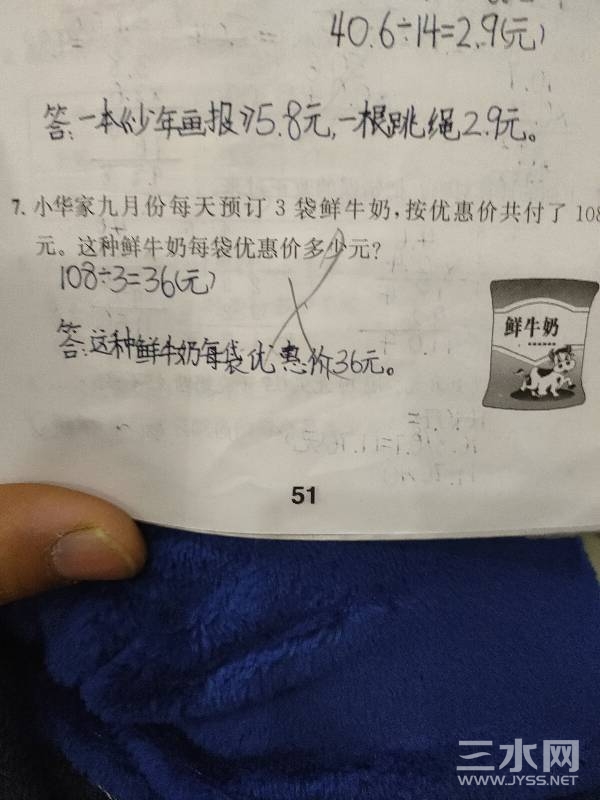 40.6÷14=2.9(元)
答:一本《少年画报》5.8元,一根跳绳2.9元。
7. 小华家九月份每天预订 3 袋鲜牛奶,按优惠价共付了 108
元。这种鲜牛奶每袋优惠价多少元?
108÷3=36(元)
答:这种鲜牛奶每袋优惠价36元。
鲜牛奶
51
三水网
WWW.JYSS.NET